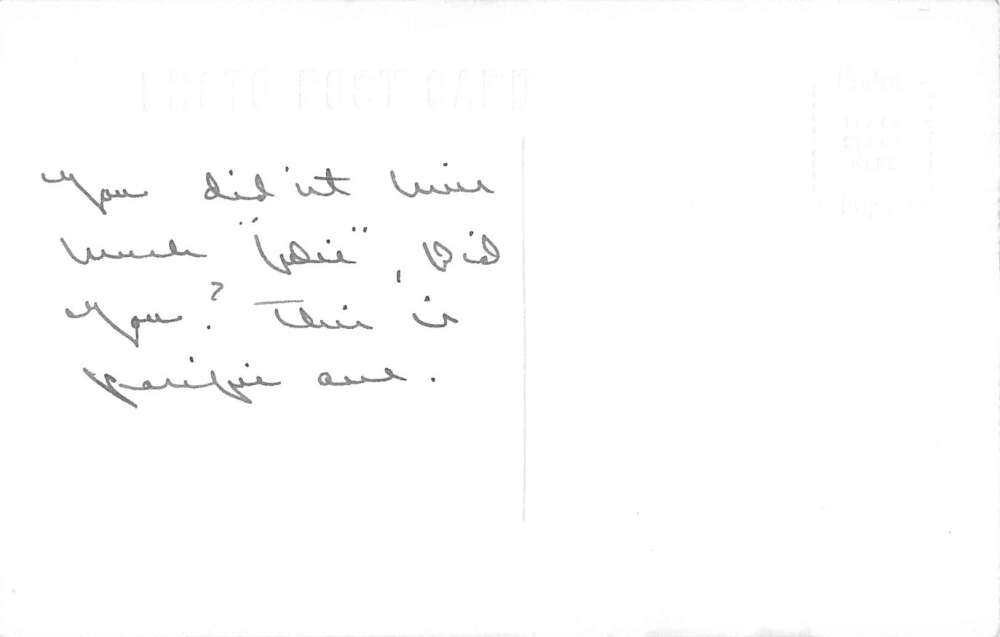 PHOTO POST CARD
PLACE
STAMP
HERE
You did'nt miss
much " ", Did
You? This is
pacific ave.